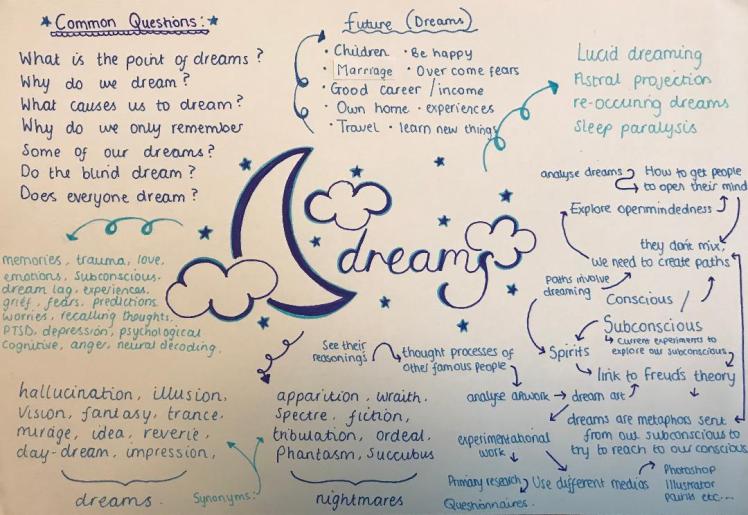 Common Questions:
What is the point of dreams?
Why do we dream?
What causes us to dream?
Why do we only remember
Some of our dreams?
Do the blind dream?
Does everyone dream?
future (Dreams)
· Children · Be happy
· Marrriage · Over come fears
· Good career / income
· Own home · experiences
· Travel · learn new things
Lucid dreaming
Astral projection
re-occuring dreams
Sleep paralysis
analyse dreams
How to get people
to open their mind
Explore openmindedness
they don't mix,
we need to create paths
Paths involve
dreaming
Conscious /
Subconscious
Current experiments to
explore our subconscious
Spirits
link to Freud's theory
dreams
memories, trauma, love,
emotions, Subconscious.
dream lag, experiences.
grief, fears, predictions.
worries, recalling thoughts.
PTSD, depression, psychological
Cognitive, anger, neural decoding.
See their
reasonings
thought processes of
other famous people
analyse artwork
dream art
dreams are metaphors sent
from our subconscious to
try to reach to our conscious
experimentational
work
Primary research
Questionnaires.
Use different medias
Photoshop
Illustrator
Paints etc...
hallucination, illusion,
Vision, fantasy, trance.
mirage, idea, reverie,
day-dream, impression,
dreams.
Synonyms:
apparition, wraith.
Spectre, fiction,
tribulation, ordeal.
Phantasm, Succubus
nightmares